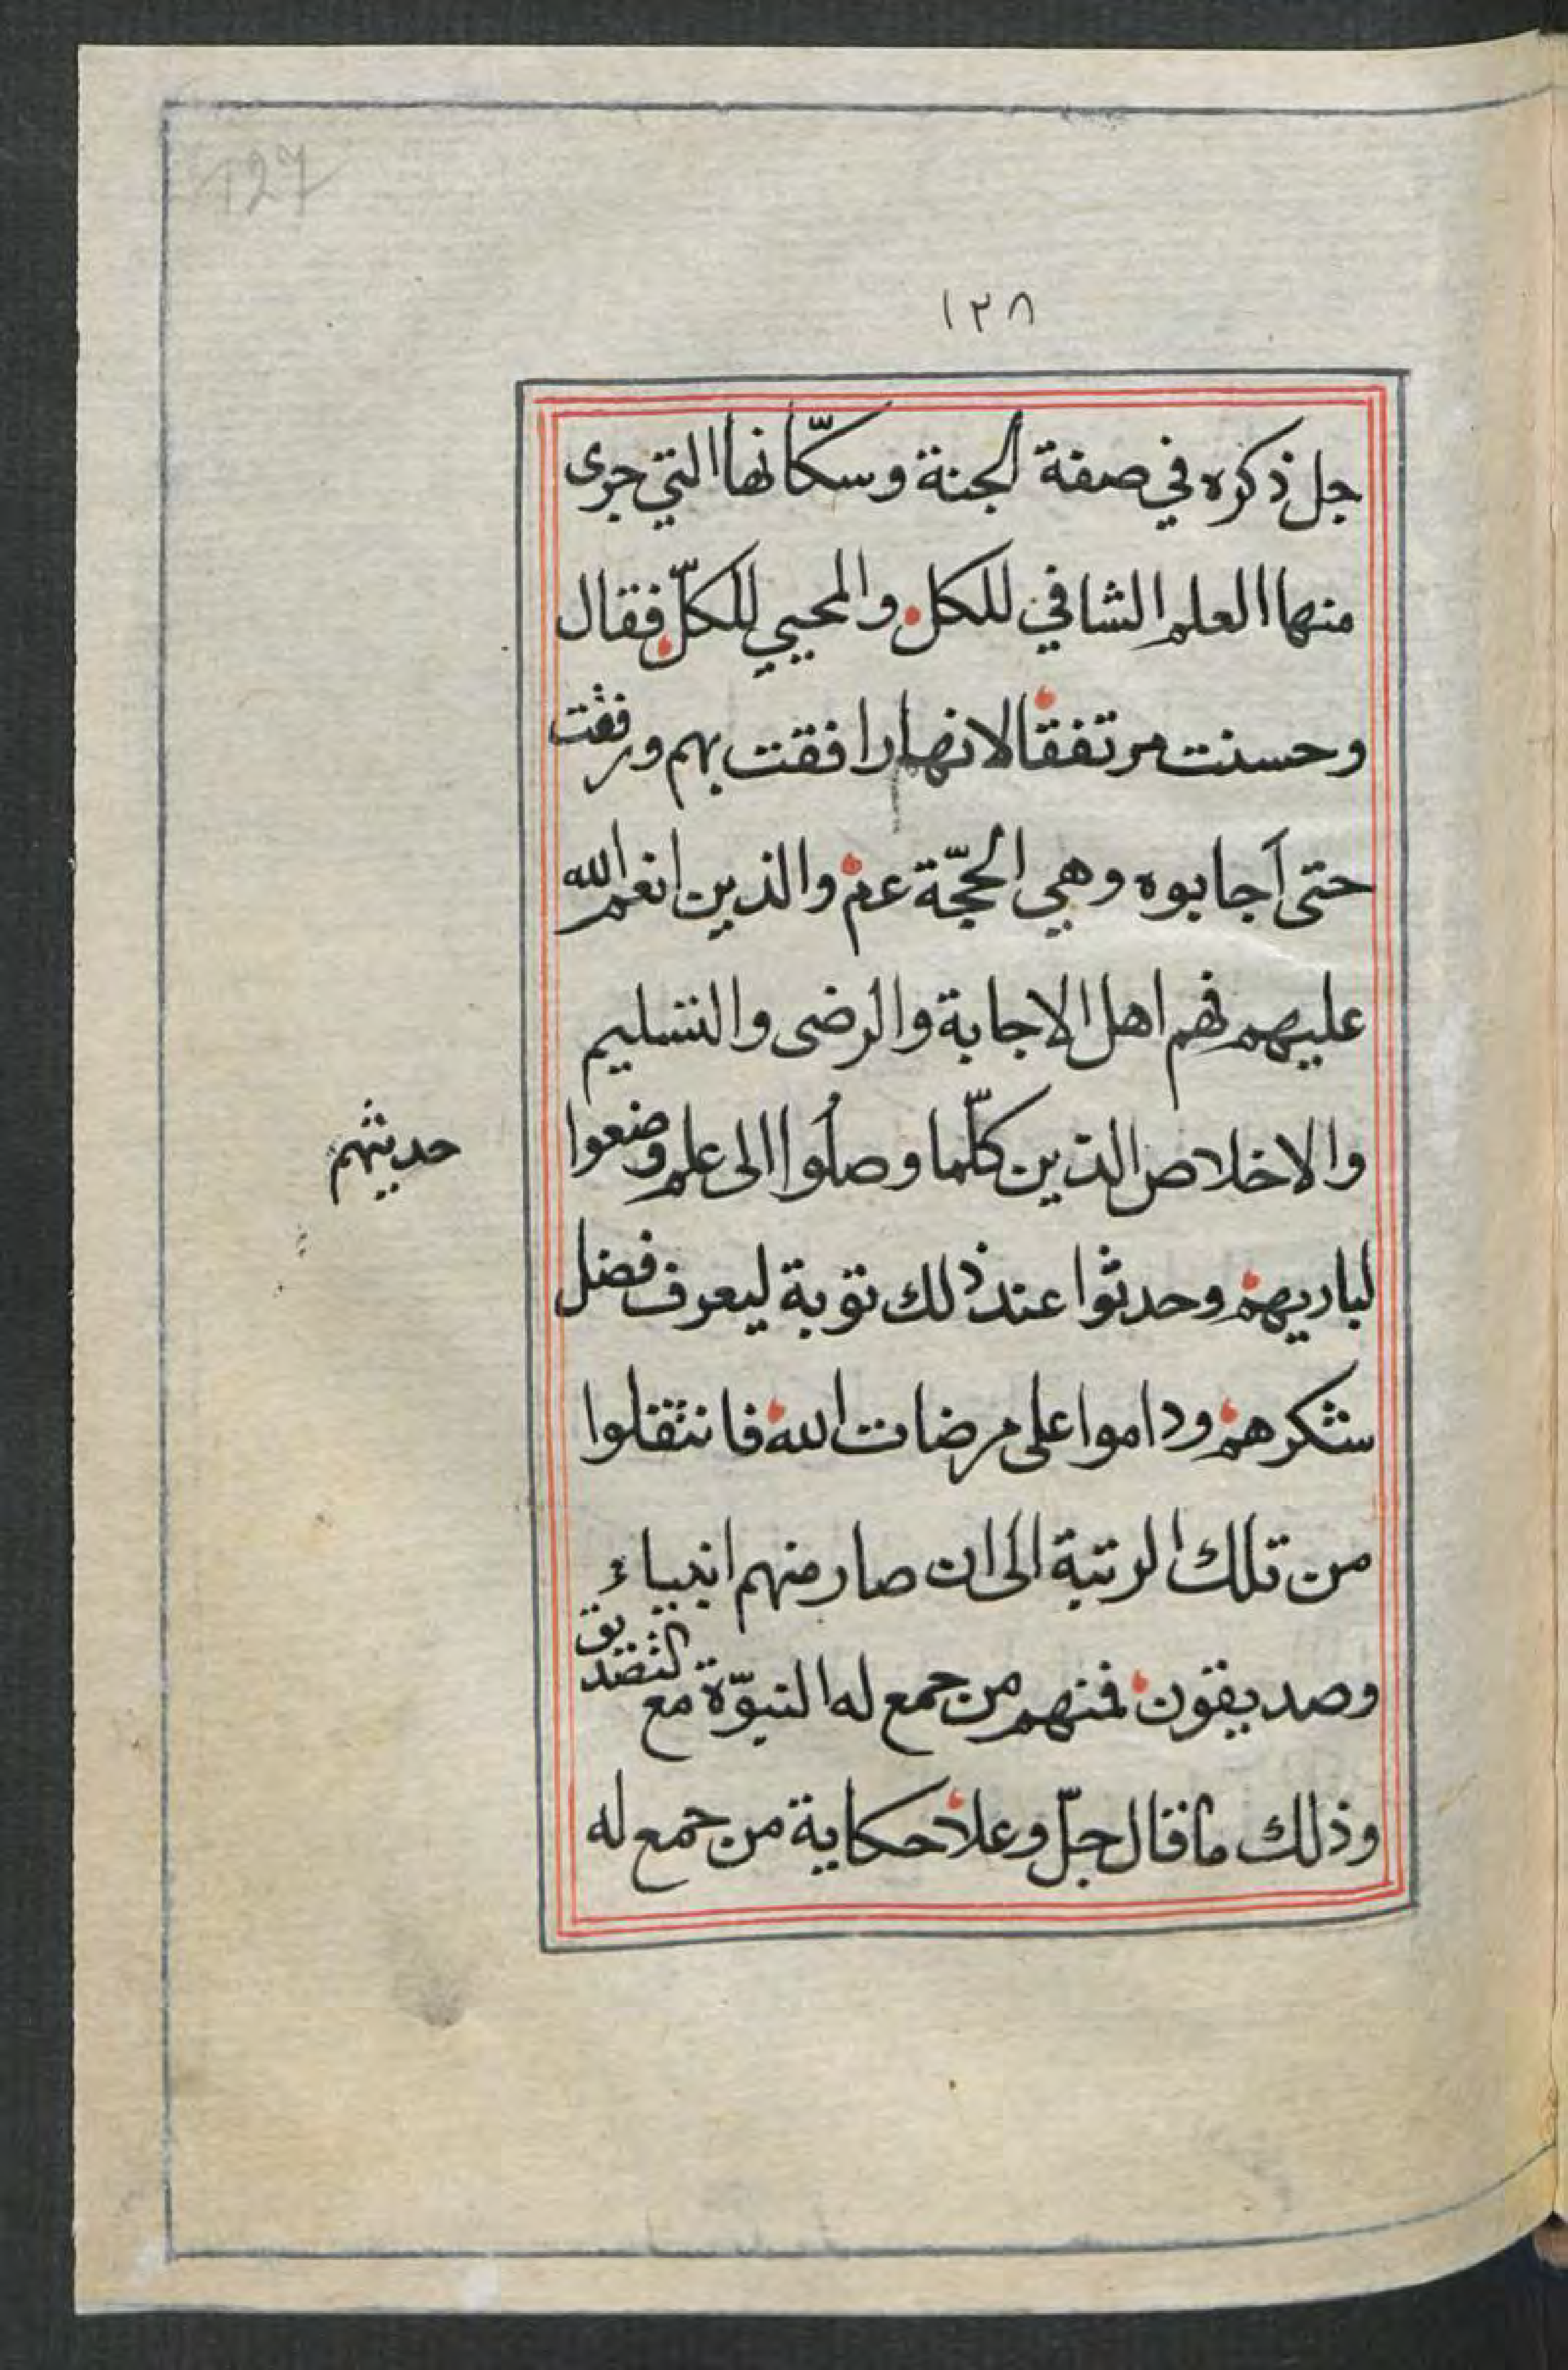 127
١٢٨
جل ذكره في صفة الجنة وسكّانها التي جرى
منها العلم الشافي للكل والمحيي للكلّ فقال
وحسنت مرتفقا لانها رافقت بهم ورفقت
حتى أجابوه وهي الحجّة عم والذين انعم الله
عليهم فهم اهل الاجابة والرضى والتسليم
والاخلاص الذين كلّما وصلوا الى علم وضعوا
حديثهم
لباريهم وحدثوا عند ذلك توبة ليعرف فضل
شكرهم وداموا على مرضات الله فانتقلوا
من تلك الرتبة الى ان صار منهم انبياء
وصديقون فمنهم من جمع له النبوّة مع التصديق
وذلك ما قال جلّ وعلا حكاية من جمع له